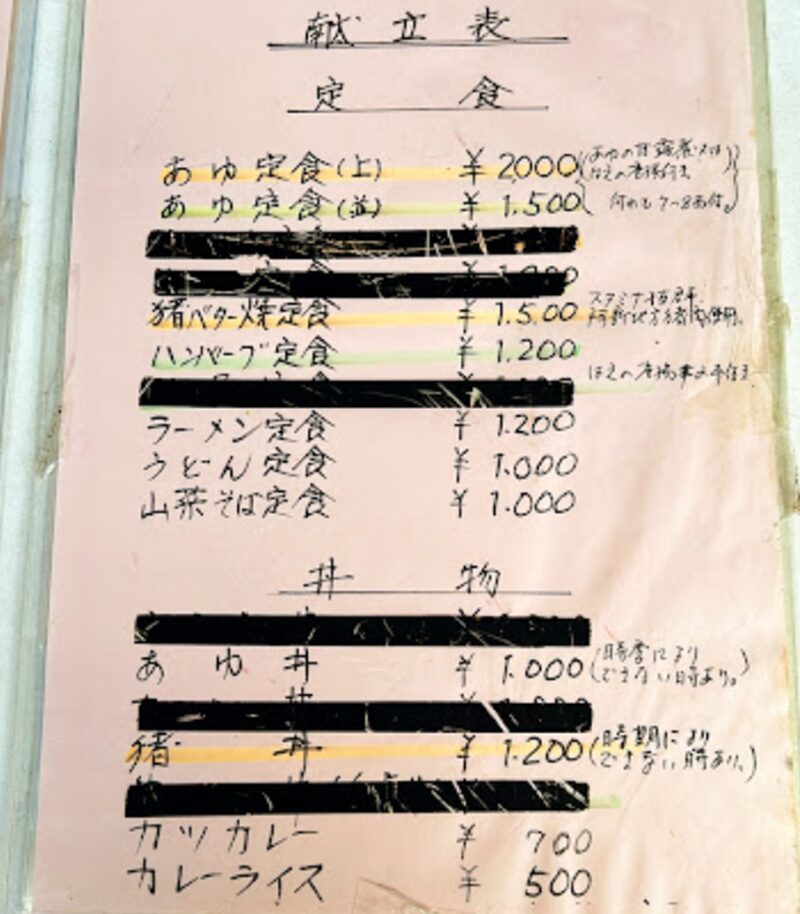 献立表
定食
あゆ定食(上) ¥2000
あゆ定食(並) ¥1.500
(あゆの甘露煮又は
はえの唐揚付き)
何れも7~8品付。
猪バター焼定食 ¥1.500
スタミナ抜群
阿新地方猪肉使用。
ハンバーグ定食 ¥1.200
ラーメン定食 ¥1.200
うどん定食 ¥1.000
山菜そば定食 ¥1.000
丼物
あゆ丼 ¥1.000
(時季により
できない時あり。)
猪丼 ¥1.200
(時期により
できない時あり。)
カツカレー ¥700
カレーライス ¥500